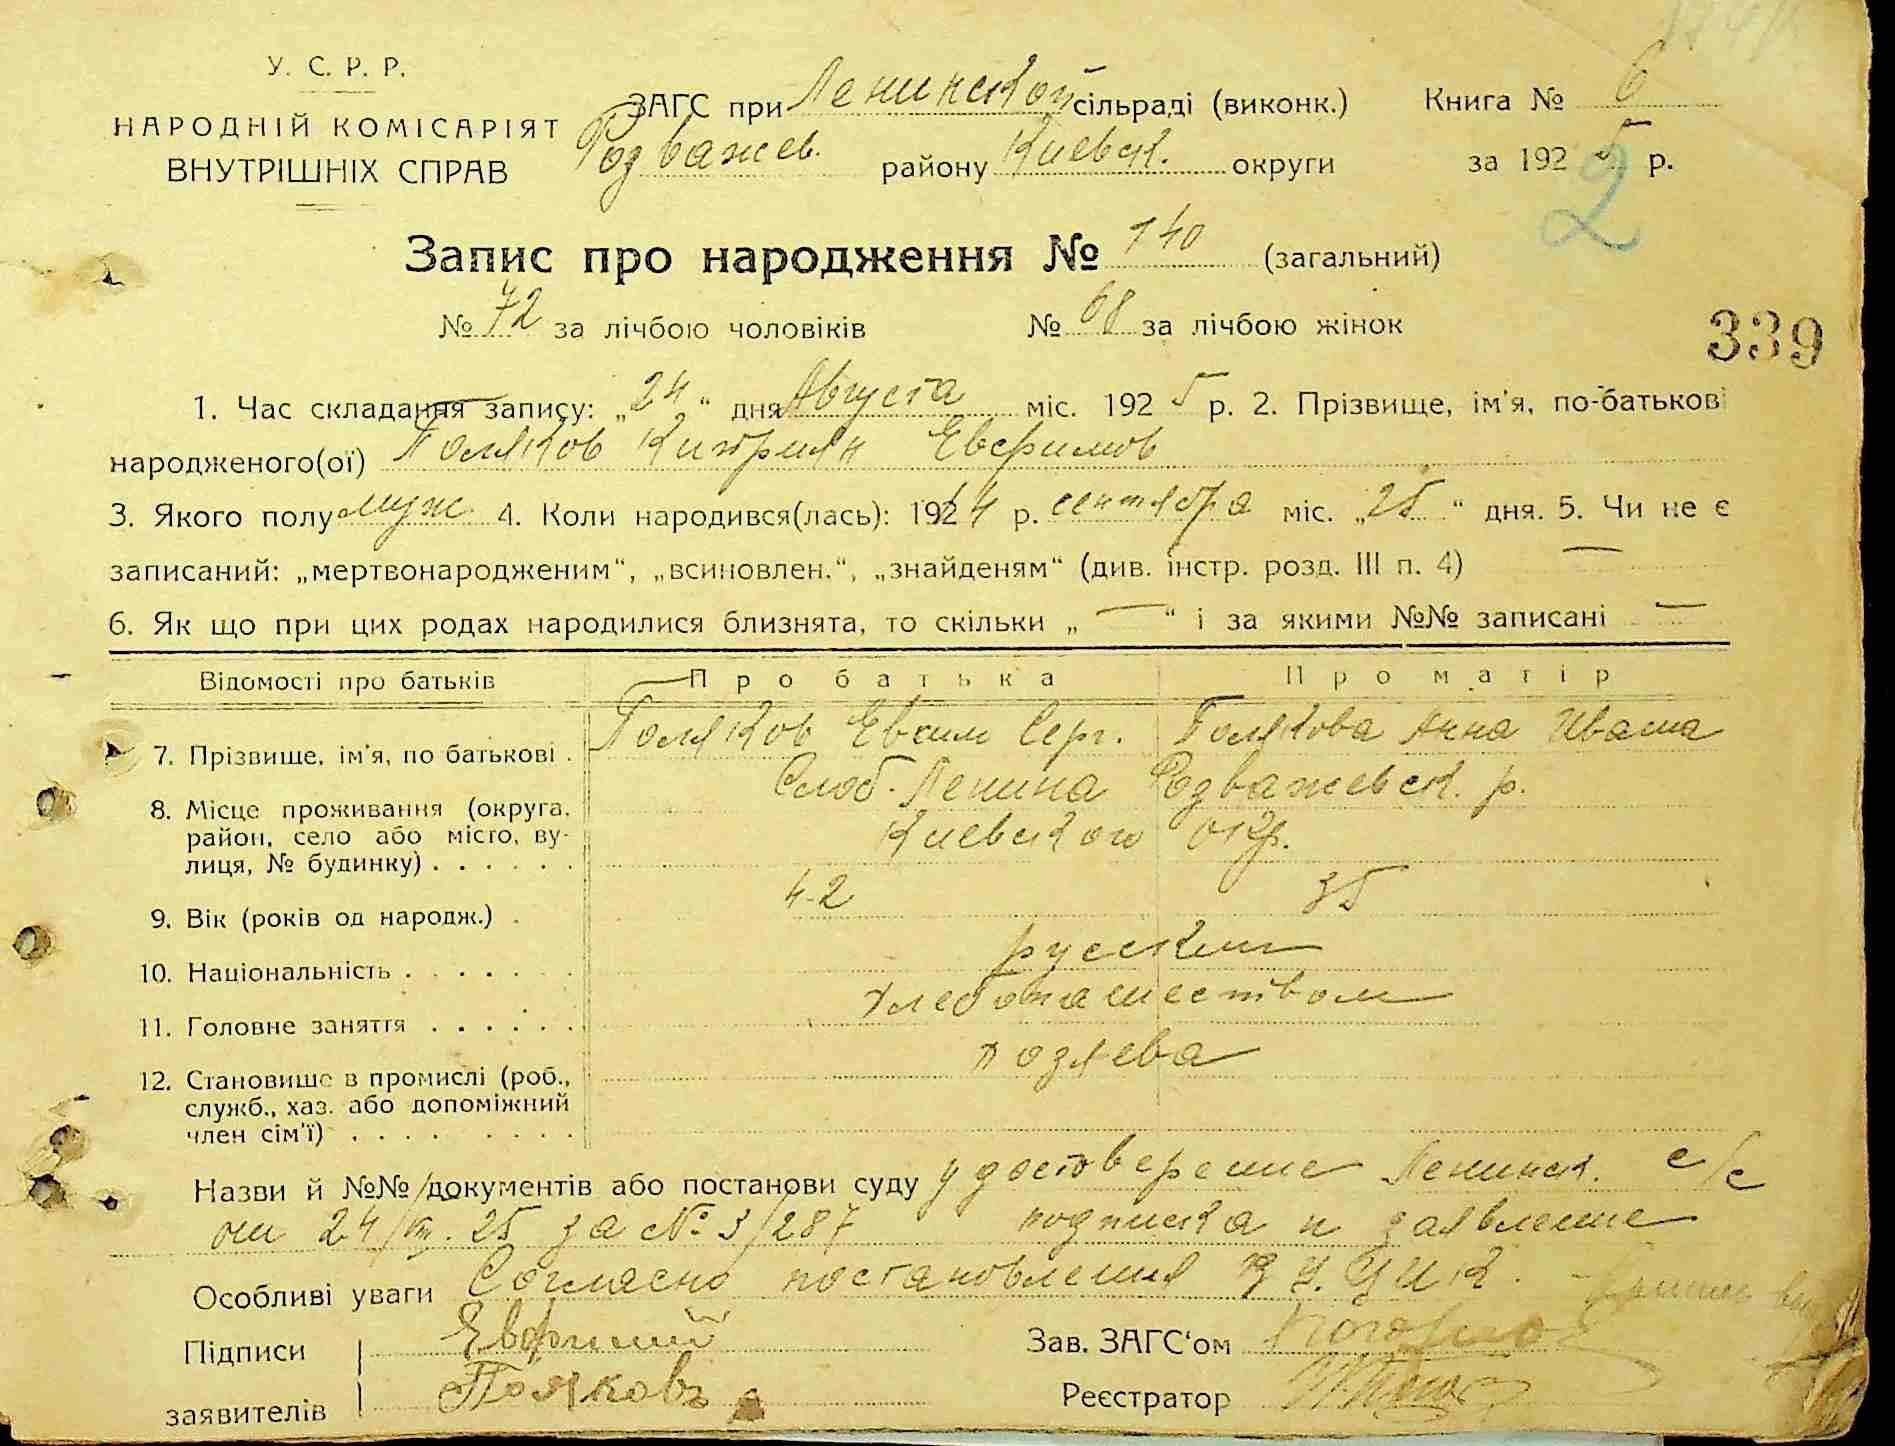 У. С. Р. Р.
НАРОДНІЙ КОМІСАРІЯТ
ВНУТРІШНІХ СПРАВ
ЗАГС при Ленинской сільраді (виконк.) Книга № 6
Розважев. району Киевск. округи за 1925 р.
2
Запис про народження № 140 (загальний)
№ 72 за лічбою чоловіків № 68 за лічбою жінок
339
1. Час складання запису: „24“ дня Августа міс. 1925 р. 2. Прізвище, ім'я, по-батькові
народженого(ої) Поляков Киприян Евфимов
3. Якого полу муж 4. Коли народився(лась): 1924 р. сентября міс. „25“ дня. 5. Чи не є
записаний: „мертвонародженим“, „всиновлен.“, „знайденям“ (див. інстр. розд. III п. 4) —
6. Як що при цих родах народилися близнята, то скільки „—“ і за якими №№ записані —
Відомості про батьків Про батька Про матір
7. Прізвище, ім'я, по батькові . Поляков Евсим Серг. Полякова Анна Ивана
8. Місце проживання (округа, Слоб. Ленина Розважевск. р.
район, село або місто, ву-
лиця, № будинку) . . . . . . Киевского окр.
9. Вік (років од народж.) . 42 35
10. Національність . . . . . . . русский
11. Головне заняття . . . . . . хлебопашеством
12. Становище в промислі (роб., хозяева
служб., хаз. або допоміжний
член сім'ї) . . . . . . . . .
Назви й №№ документів або постанови суду удостоверение Ленинск. с/с
от 24/VIII. 25 за № 3/287 подписка и заявление
Особливі уваги Согласно постановления ВУЦИК.
Підписи Евфимий Зав. ЗАГС‘ом
заявителів Поляковъ Реєстратор